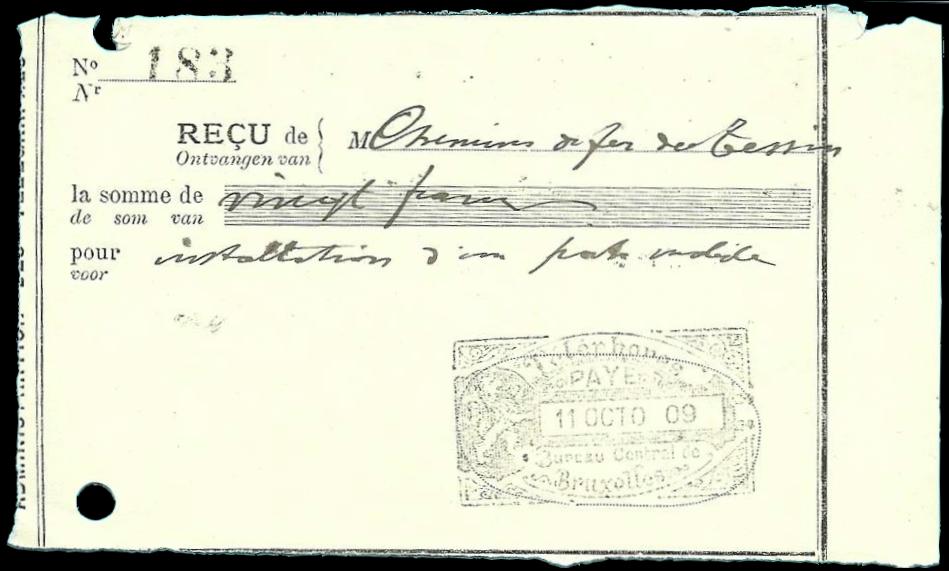 No 183
Nr
REÇU de
Ontvangen van
M Chemins de fer du Tessin
la somme de vingt francs
de som van
pour installation d'un poste mobile
voor
Téléphones
PAYE
11 OCTO 09
Bureau Central de
Bruxelles